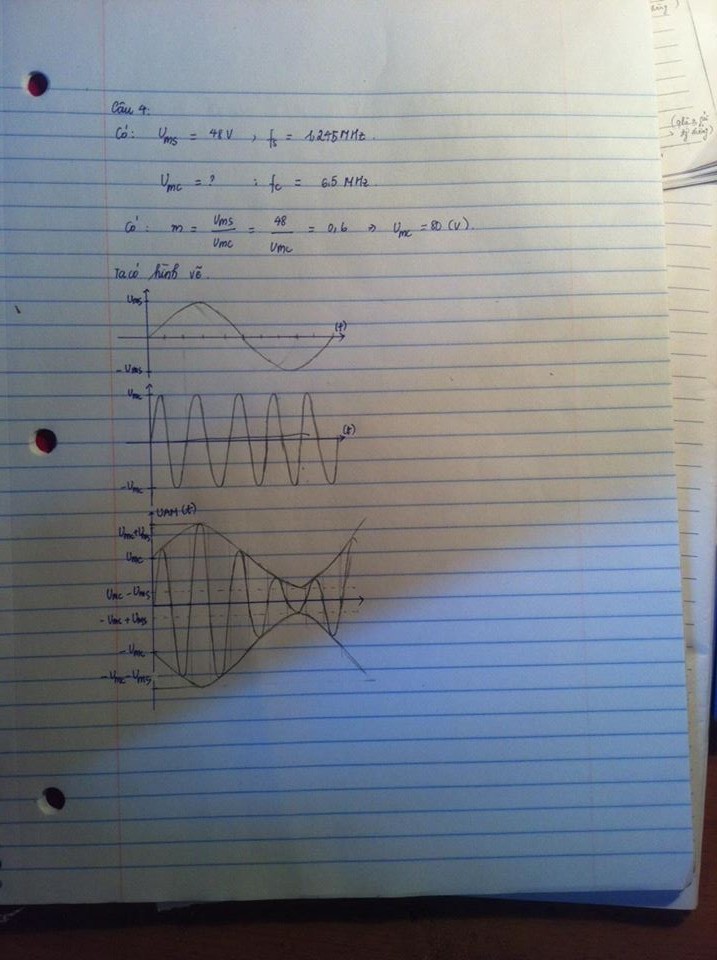 Câu 4:
Có: Ums = 48V , fs = 1,245MHz.
Umc = ? ; fc = 6.5 MHz.
Có: m = Ums/Umc = 48/Umc = 0,6 => Umc = 80 (V).
Ta có hình vẽ.
Ums
(t)
-Ums
Umc
(t)
-Umc
UAM(t)
Umc+Ums
Umc
Umc-Ums
-Umc+Ums
-Umc
-Umc-Ums